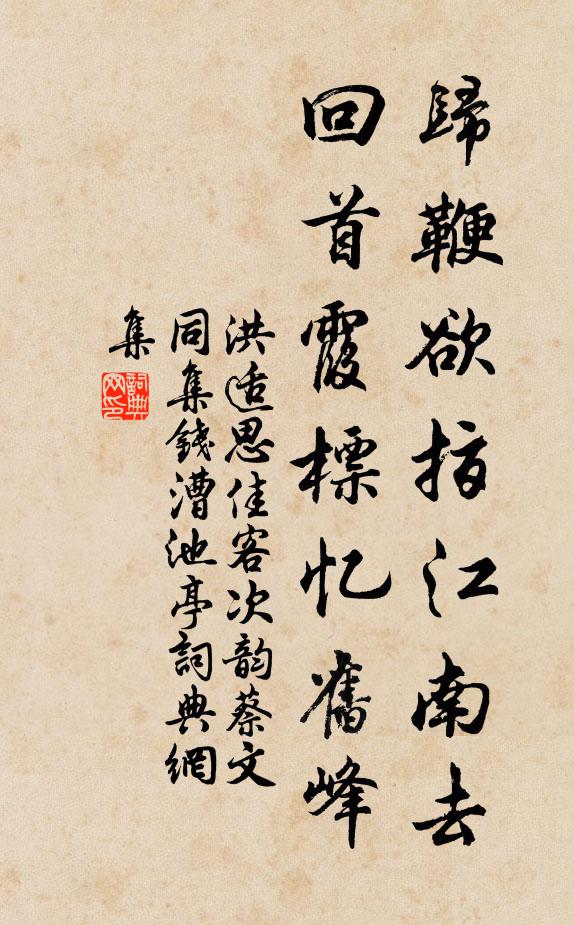 歸鞭欲指江南去
回首霞標忆舊峰
洪适思佳客次韵蔡文
同集錢漕池亭詞典網
集
詞典
网印